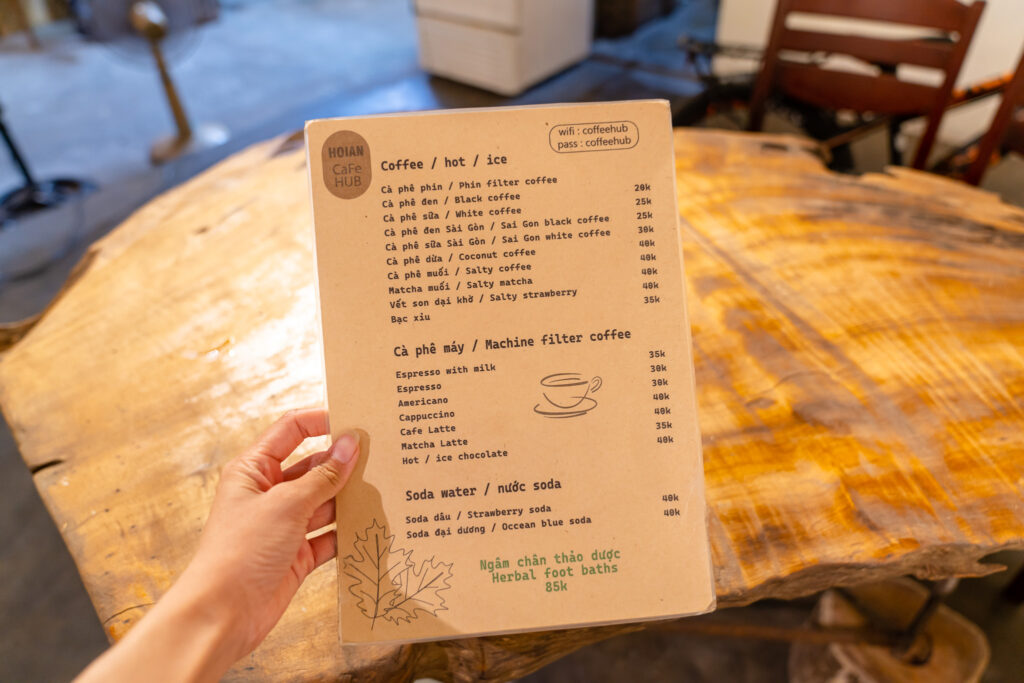 HOIAN
CaFe
HUB
wifi : coffeehub
pass : coffeehub
Coffee / hot / ice
Cà phê phin / Phin filter coffee
Cà phê đen / Black coffee 20k
Cà phê sữa / White coffee 25k
Cà phê đen Sài Gòn / Sai Gon black coffee 25k
Cà phê sữa Sài Gòn / Sai Gon white coffee 30k
Cà phê dừa / Coconut coffee 40k
Cà phê muối / Salty coffee 40k
Matcha muối / Salty matcha 40k
Vết son dại khờ / Salty strawberry 40k
Bạc xỉu 35k
Cà phê máy / Machine filter coffee
Espresso with milk 35k
Espresso 30k
Americano 30k
Cappuccino 40k
Cafe Latte 40k
Matcha Latte 35k
Hot / ice chocolate 40k
Soda water / nước soda
Soda dâu / Strawberry soda 40k
Soda đại dương / Occean blue soda 40k
Ngâm chân thảo dược
Herbal foot baths
85k